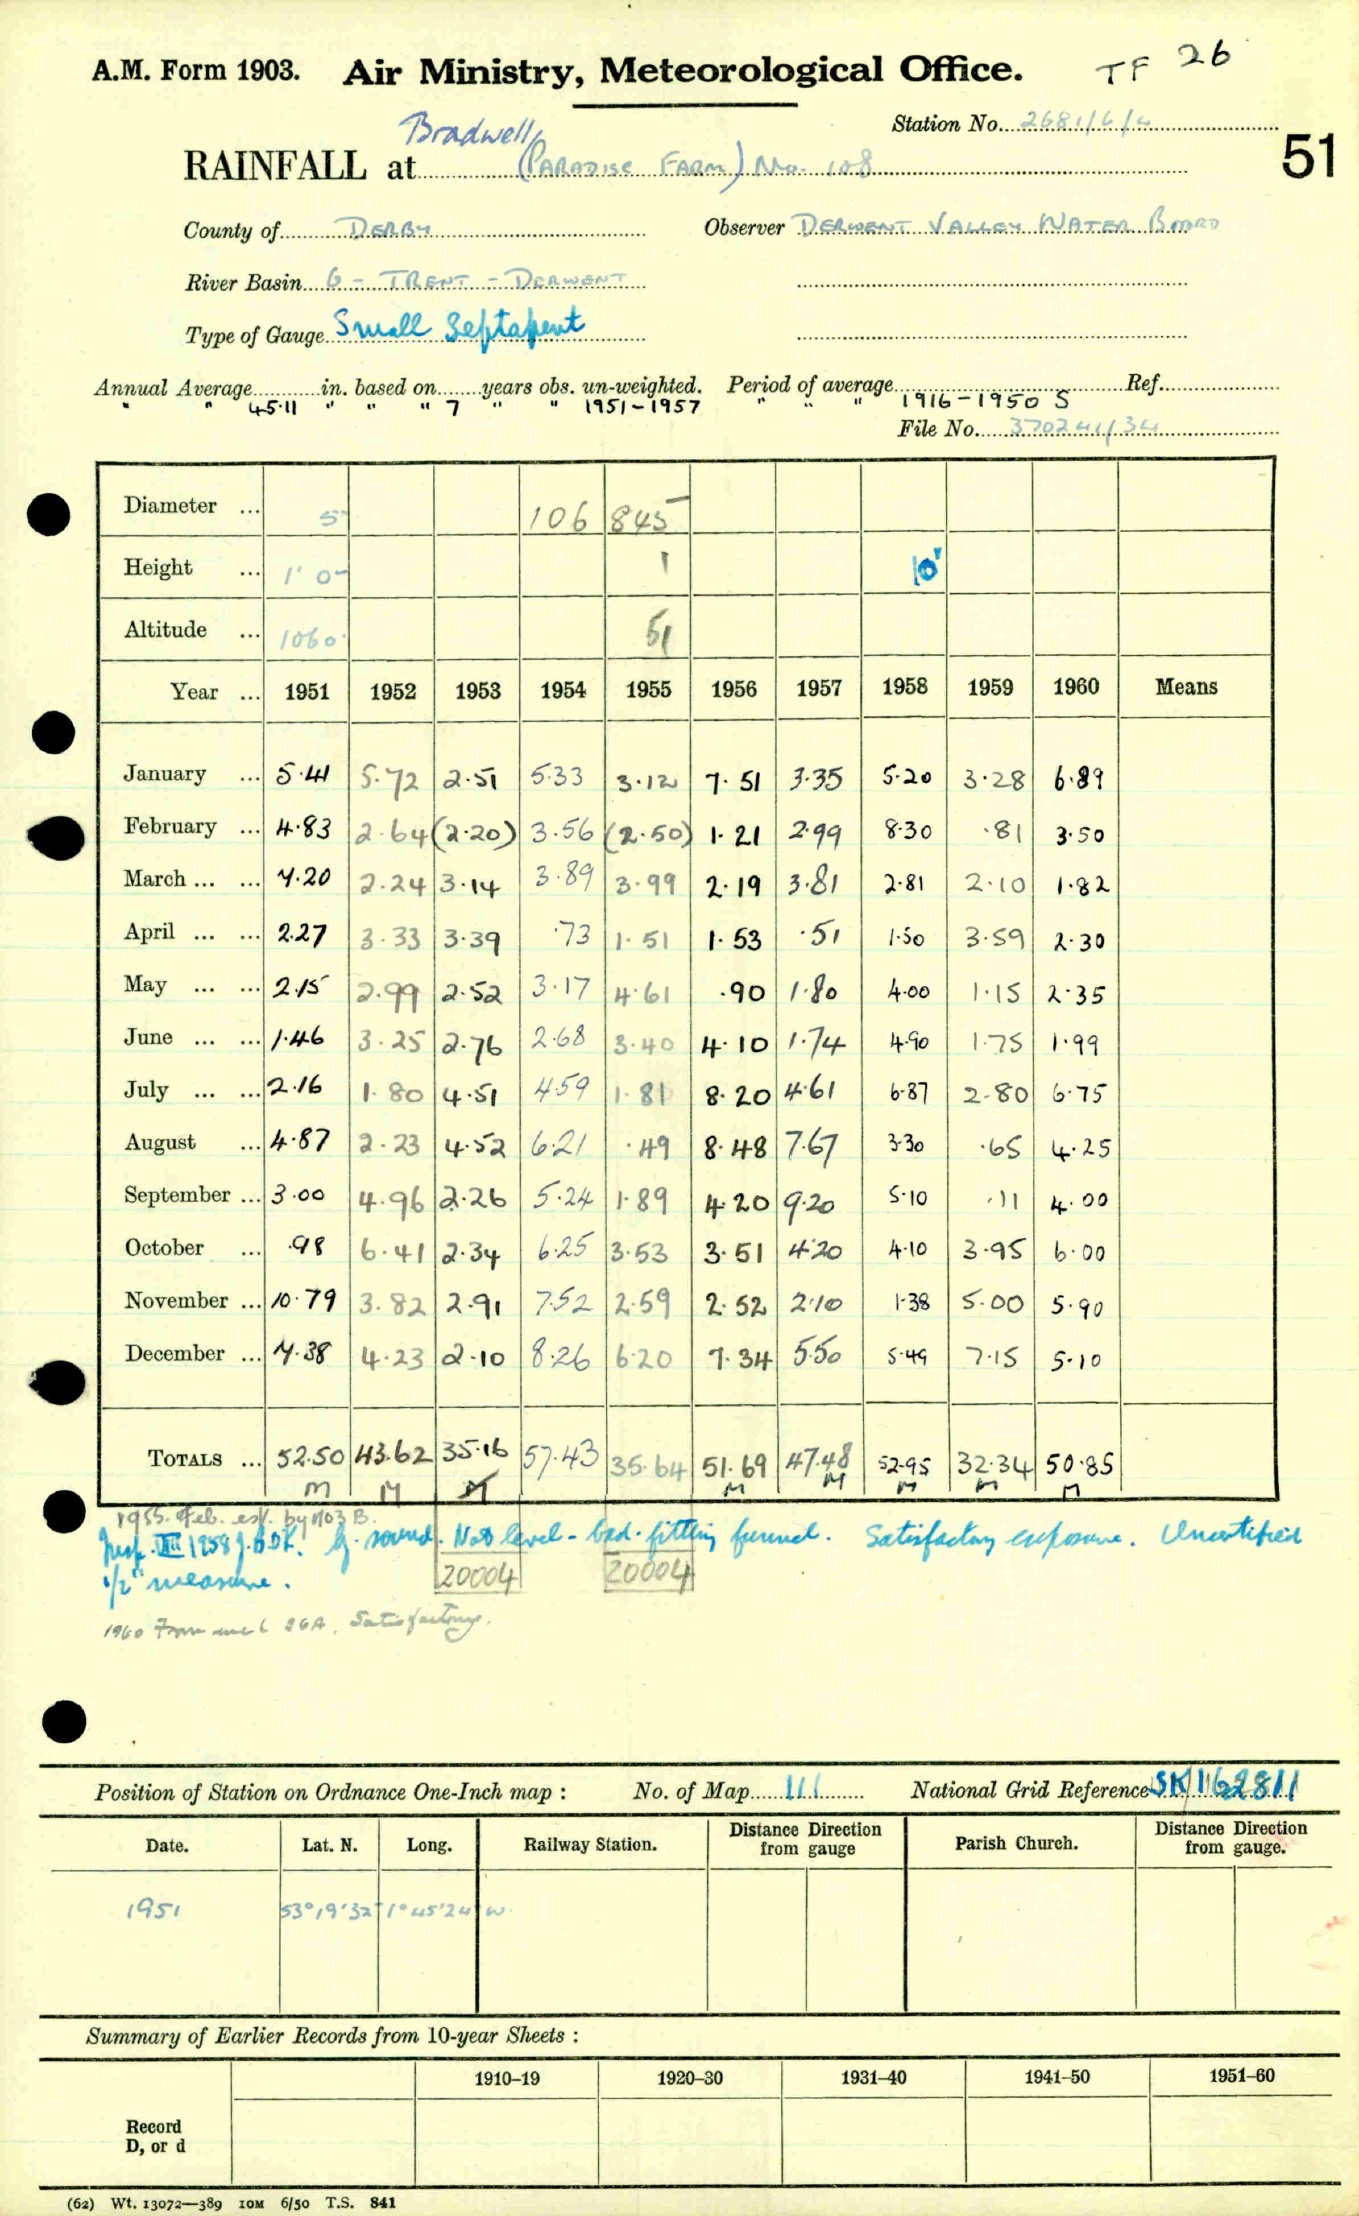 A.M. Form 1903. Air Ministry, Meteorological Office. TF 26
Station No. 2681/6/4
51
Bradwell,
RAINFALL at (PARADISE FARM) No. 108
County of DERBY Observer DERWENT VALLEY WATER BOARD
River Basin 6 - TRENT - DERWENT
Type of Gauge Small Septapent
Annual Average in. based on years obs. un-weighted. Period of average Ref.
" " 45.11 " " " 7 " " 1951-1957 " " " 1916-1950 S
File No. 370241/34
Diameter ... 5 106 845
Height ... 1' 0" 1 10"
Altitude ... 1060 51
Year ... 1951 1952 1953 1954 1955 1956 1957 1958 1959 1960 Means
January ... 5.41 5.72 2.51 5.33 3.12 7.51 3.35 5.20 3.28 6.89
February ... 4.83 2.64 (2.20) 3.56 (2.50) 1.21 2.99 8.30 .81 3.50
March ... ... 7.20 2.24 3.14 3.89 3.99 2.19 3.81 2.81 2.10 1.82
April ... ... 2.27 3.33 3.39 .73 1.51 1.53 .51 1.50 3.59 2.30
May ... ... 2.15 2.99 2.52 3.17 4.61 .90 1.80 4.00 1.15 2.35
June ... ... 1.46 3.25 2.76 2.68 3.40 4.10 1.74 4.90 1.75 1.99
July ... ... 2.16 1.80 4.51 4.59 1.81 8.20 4.61 6.87 2.80 6.75
August ... 4.87 2.23 4.52 6.21 .49 8.48 7.67 3.30 .65 4.25
September ... 3.00 4.96 2.26 5.24 1.89 4.20 9.20 5.10 .11 4.00
October ... .98 6.41 2.34 6.25 3.53 3.51 4.20 4.10 3.95 6.00
November ... 10.79 3.82 2.91 7.52 2.59 2.52 2.10 1.38 5.00 5.90
December ... 7.38 4.23 2.10 8.26 6.20 7.34 5.50 5.49 7.15 5.10
TOTALS ... 52.50 43.62 35.16 57.43 35.64 51.69 47.48 52.95 32.34 50.85
M M M M M M M M
1955. Feb. est. by No3 B.
Insp. VIII 1958 J.B.D.K. G. sound. Not level - bad-fitting funnel. Satisfactory exposure. Uncertified
1/2" measure. 20004 20004
1960 From Satisfactory.
Position of Station on Ordnance One-Inch map : No. of Map 111 National Grid Reference SK/162811
Date. Lat. N. Long. Railway Station. Distance from Direction gauge Parish Church. Distance from Direction gauge.
1951 53° 19' 32" 1° 45' 24" W.
Summary of Earlier Records from 10-year Sheets :
1910–19 1920–30 1931–40 1941–50 1951–60
Record
D, or d
(62) Wt. 13072—389 10M 6/50 T.S. 841